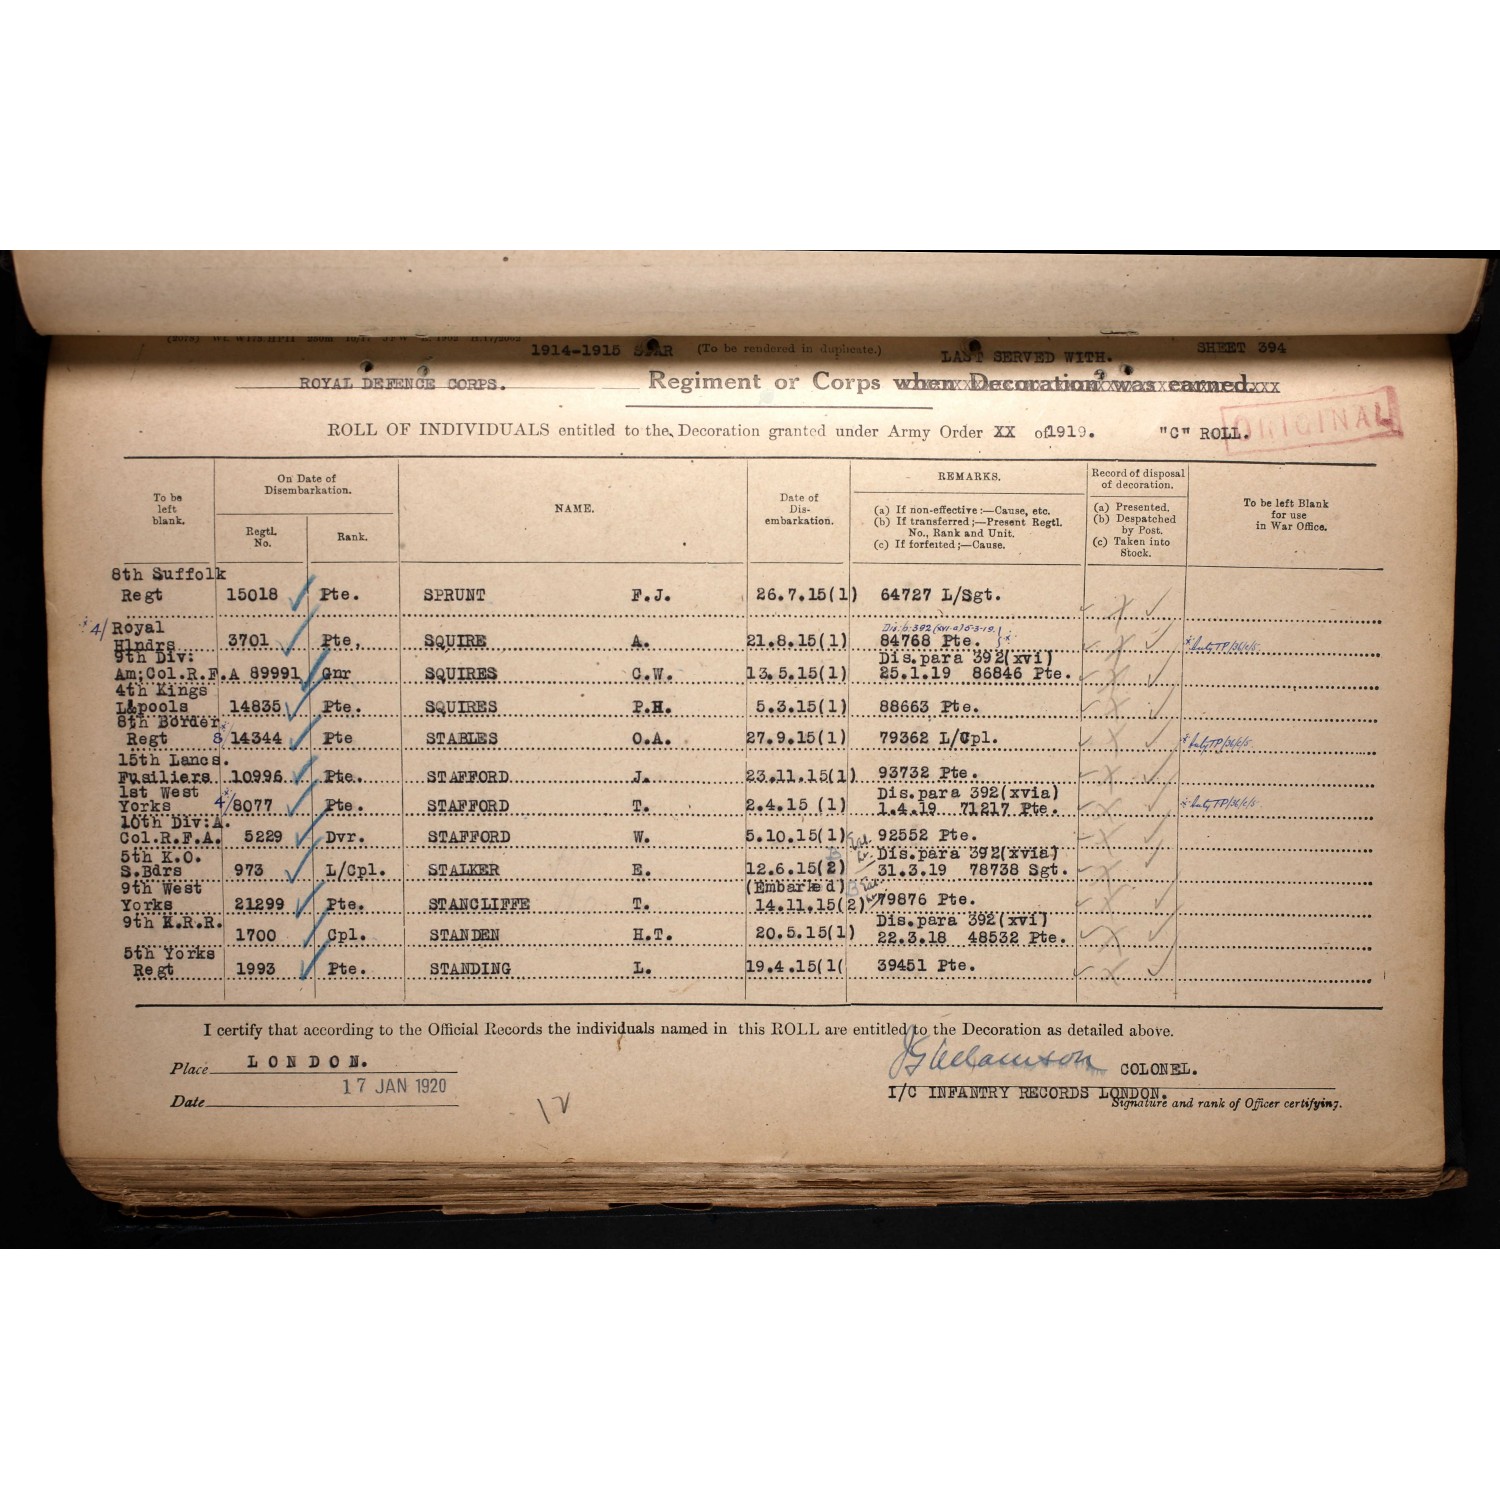 1914-1915 STAR (To be rendered in duplicate.) LAST SERVED WITH. SHEET 394
ROYAL DEFENCE CORPS. Regiment or Corps when Decoration was earned.
ORIGINAL
ROLL OF INDIVIDUALS entitled to the Decoration granted under Army Order XX of 1919. "C" ROLL.
To be left blank. On Date of Disembarkation. Regtl. No. Rank. NAME. Date of Dis-embarkation. REMARKS. (a) If non-effective:—Cause, etc. (b) If transferred;—Present Regtl. No., Rank and Unit. (c) If forfeited;—Cause. Record of disposal of decoration. (a) Presented. (b) Despatched by Post. (c) Taken into Stock. To be left Blank for use in War Office.
8th Suffolk
Regt 15018 Pte. SPRUNT F.J. 26.7.15(1) 64727 L/Sgt.
4/ Royal
Hlndrs 3701 Pte, SQUIRE A. 21.8.15(1) 84768 Pte.
9th Div: Dis.para 392(xvi)
Am;Col.R.F.A 89991 Gnr SQUIRES C.W. 13.5.15(1) 25.1.19 86846 Pte.
4th Kings
L&pools 14835 Pte. SQUIRES P.H. 5.3.15(1) 88663 Pte.
8th Border
Regt 8/ 14344 Pte STABLES O.A. 27.9.15(1) 79362 L/Cpl.
15th Lancs.
Fusiliers 10996 Pte. STAFFORD J. 23.11.15(1) 93732 Pte.
1st West Dis.para 392(xvia)
Yorks 4/ 8077 Pte. STAFFORD T. 2.4.15 (1) 1.4.19 71217 Pte.
10th Div:A.
Col.R.F.A. 5229 Dvr. STAFFORD W. 5.10.15(1) 92552 Pte.
5th K.O. Dis.para 392(xvia)
S.Bdrs 973 L/Cpl. STALKER E. 12.6.15(2) 31.3.19 78738 Sgt.
9th West (Embarked)
Yorks 21299 Pte. STANCLIFFE T. 14.11.15(2) 79876 Pte.
9th K.R.R. Dis.para 392(xvi)
1700 Cpl. STANDEN H.T. 20.5.15(1) 22.3.18 48532 Pte.
5th Yorks
Regt 1993 Pte. STANDING L. 19.4.15(1( 39451 Pte.
I certify that according to the Official Records the individuals named in this ROLL are entitled to the Decoration as detailed above.
Place LONDON. COLONEL.
17 JAN 1920 I/C INFANTRY RECORDS LONDON.
Date Signature and rank of Officer certifying.
12